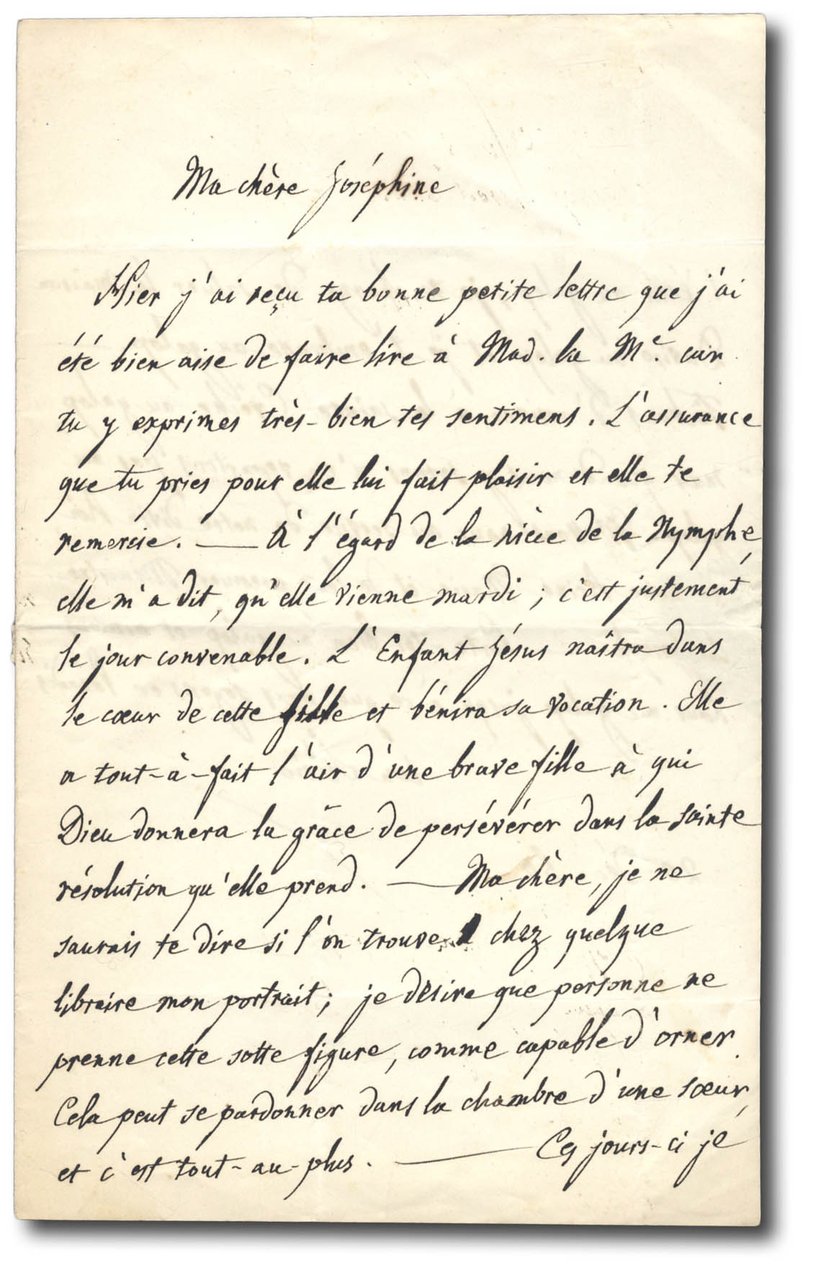 Ma chère Joséphine
Hier j'ai reçu ta bonne petite lettre que j'ai
été bien aise de faire lire à Mad. la M.e car
tu y exprimes très-bien tes sentimens. L'assurance
que tu pries pour elle lui fait plaisir et elle te
remercie. — À l'égard de la nièce de la Nymphe,
elle m'a dit, qu'elle vienne mardi ; c'est justement
le jour convenable. L'Enfant Jésus naîtra dans
le cœur de cette fille et bénira sa vocation. Elle
a tout-à-fait l'air d'une brave fille à qui
Dieu donnera la grâce de persévérer dans la sainte
résolution qu'elle prend. — Ma chère, je ne
saurais te dire si l'on trouve chez quelque
libraire mon portrait ; je désire que personne ne
prenne cette sotte figure, comme capable d'orner.
Cela peut se pardonner dans la chambre d'une sœur,
et c'est tout-au-plus. — Ces jours-ci je